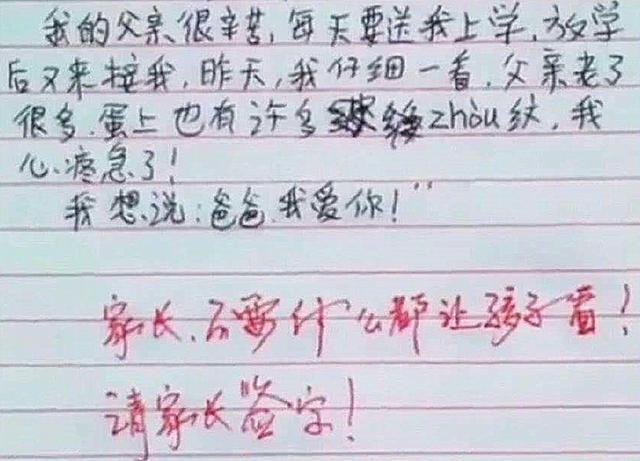 我的父亲很辛苦,每天要送我上学,放学
后又来接我,昨天,我仔细一看,父亲老了
很多,蛋上也有许多zhòu纹,我
心疼急了!
我想说:爸爸,我爱你!”
家长,不要什么都让孩子看!
请家长签字!